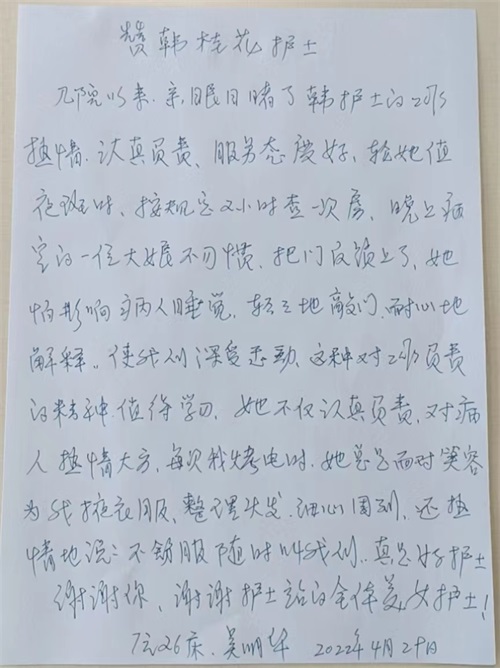 赞韩桂花护士
入院以来,亲眼目睹了韩护士的工作
热情.认真负责、服务态度好,轮她值
夜班时、按规定2小时查一次房、晚上病
室的一位大娘不习惯.把门反锁上了,她
怕影响病人睡觉,轻轻地敲门.耐心地
解释。使我们深受感动、这种对工作负责
的精神.值得学习、她不仅认真负责、对病
人热情大方,每次我烤电时.她总是面对笑容
为我掖衣服、整理头发.细心周到,还热
情地说:不舒服随时叫我们.真是好护士
谢谢你、谢谢护士站的全体美女护士!
26床.吴明华 2022年4月29日